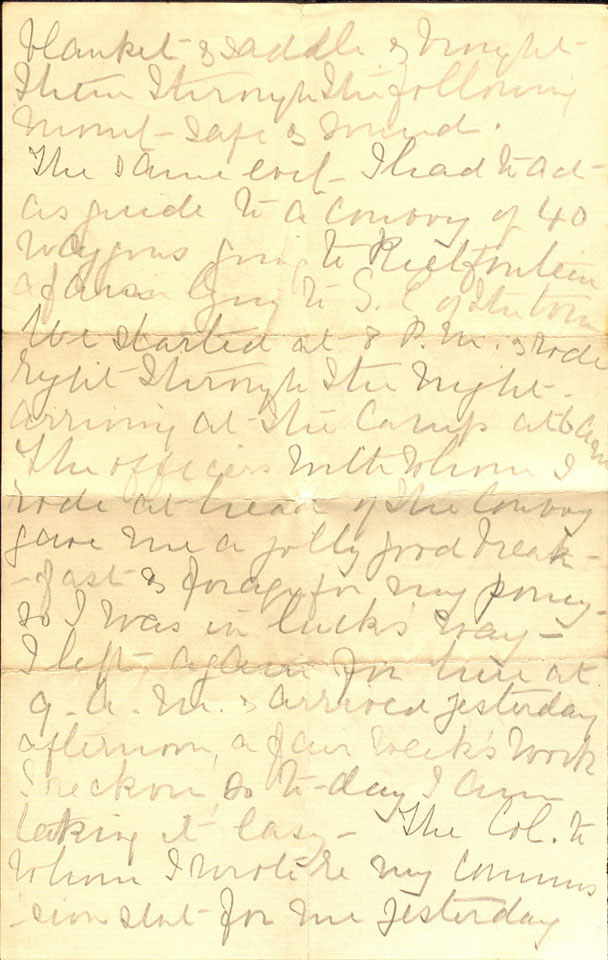 blanket & saddle & brought
them through the following
morn - safe & sound.
The same evg - I had to act
as guide to a convoy of 40
waggons going to Rietfontein
a farm lying to S.E. of the town
We started at 8 P.M. & rode
right through the night -
arriving at the Camp at 6 am
The officers with whom I
rode at head of the Convoy
gave me a jolly good break-
-fast & forage for my poney -
so I was in luck's way -
I left again for here at
9. A. M. & arrived yesterday
afternoon, a fair week's work
I reckon, so to-day I am
taking it easy - The Col. to
whom I wrote re my commis
-sion sent for me yesterday